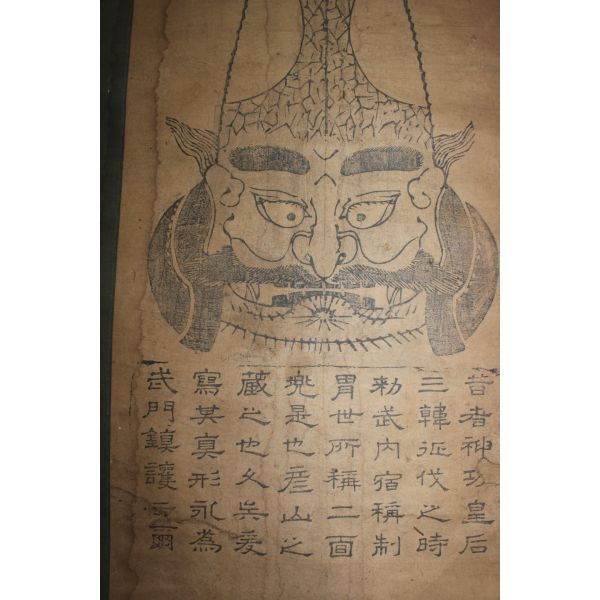 昔者神功皇后
三韓征伐之時
勅武内宿稱制
冑世所稱二面
兜是也彦山之
蔵之也久矣爰
寫其真形永為
武門鎮護爾